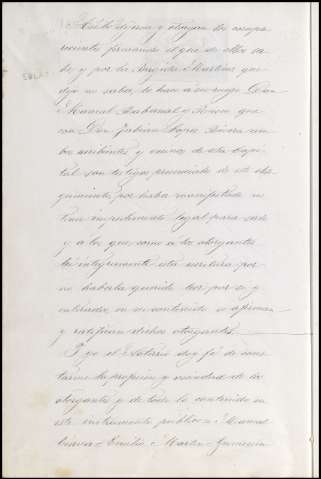 Así lo dicen y otorgan los compa
recientes firmando el que de ellos sa
be y por la Brígida Martínez que
dijo no saber, lo hace a su ruego Don
Manuel Rabanal y
con Don Fabián López Rivera am
bos escribientes y vecinos de esta Capi
tal son testigos presenciales de este otor
gamiento, por haber manifestado no
tener impedimento legal para serlo
y a los que como a los otorgantes
leí íntegramente esta escritura por
no haberla querido leer por sí y
enterados, en su contenido se afirman
y ratifican dichos otorgantes.
Y yo el Notario doy fé de cons
tarme la profesión y vecindad de los
otorgantes y de todo lo contenido en
este instrumento público = Manuel
= Emilio Martín